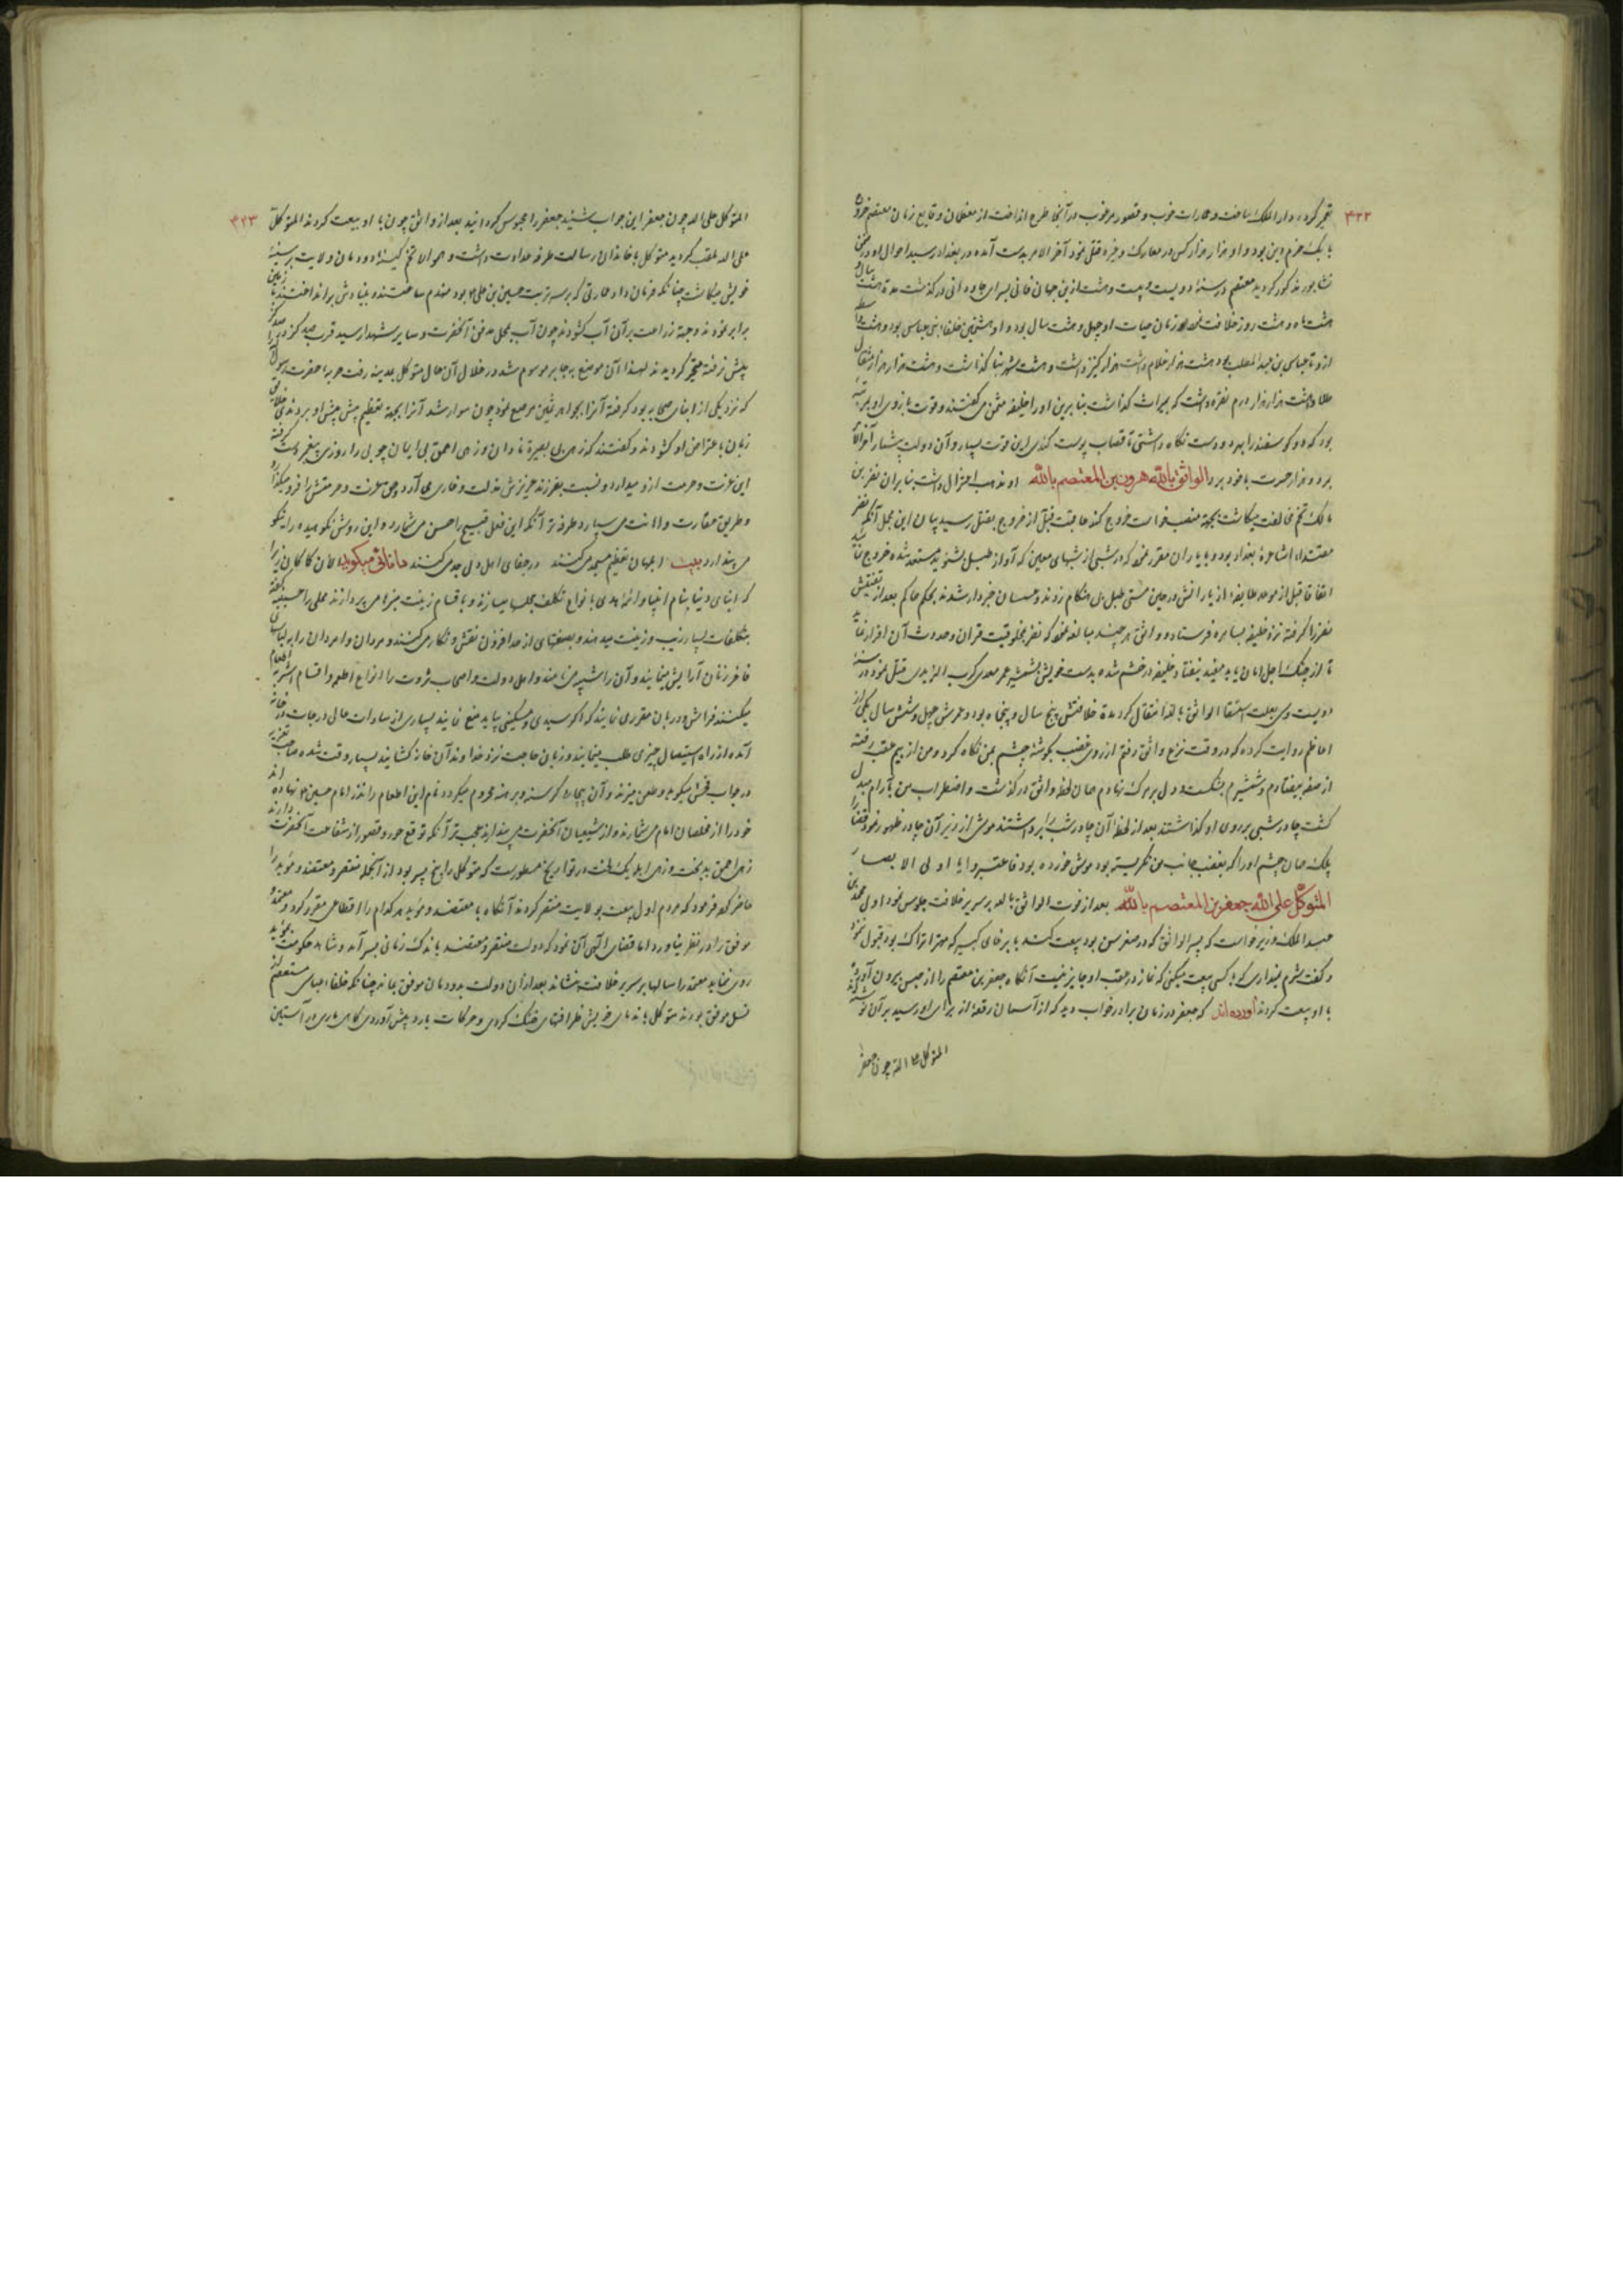 ۴۲۲
دار الملک ساخت و عمارات خوب و قصور مرغوب در آنجا طرح انداخت از معظمات وقایع زمان معتصم خروج
بابک خرم دین بود و او هزار هزار کس در معارک و غیره قتل نمود آخر الامر بدست آمده در بغداد رسید احوال او در ضمن
نشابور مذکور گردید معتصم در سنه دویست و بیست و هشت ازین جهان فانی بسرای جاودانی درگذشت مدة هشت سال و
هشت ماه و هشت روز خلافت نمود و زمان حیات او چهل و هشت سال بود و او هشتمین خلفاء بنی عباس بود و هشت واسطه
از و تا عباس بن عبد المطلب بود هشت هزار غلام داشت هزار کنیز داشت و هشت شهر بنا گذاشت و هشت هزار هزار مثقال
طلا و هشت هزار هزار درم نقره داشت که بمیراث گذاشت بنابرین او را خلیفه مثمن می گفتند و قوت بازوی او بمرتبه
بود که دو گوسفند را بهر دو دست نگاه داشتی تا قصاب پوست کندی این قوت بسیار و آن دولت بیشمار آخر الامر
برد و هزار حسرت با خود برد الواثق بالله هرون بن المعتصم بالله او مذهب اعتزال داشت بنابران نصر بن
مالک تخم مخالفت میکاشت بجهة منصب خواست خروج کند عاقبت قبل از خروج بقتل رسید بیان این مجمل آنکه نصر
مقتداء اشاعره بغداد بود و با یاران مقرر نمود که در شبی از شبهای معین که آواز طبل بشنوید مستعد شده خروج نمائید
اتفاقا قبل از موعد طایفه از یارانش در حین مستی طبل بی هنگام زدند و عسسان خبردار شدند بحکم حاکم بعد از تفتیش
نصر را گرفته نزد خلیفه بسامره فرستاد و واثق هر چند مبالغه نمود که نصر بمخلوقیت قران و حدوث آن اقرار نماید
تا از چنگ اجل امان یابد مفید نیفتاد خلیفه در خشم شده بدست خویش بشمشیر عمر معدی کرب الزبیدی قتل نمود در سنه
دویست و سی بعلت استسقا الواثق بالله انتقال کرد مدة خلافتش پنج سال و پنجاه بود و عمرش چهل و شش سال یکی از
اعاظم روایت کرده که در وقت نزع واثق رفتم از روی غضب بگوشه چشم بمن نگاه کرد و من از بیم عقب رفته
از صفه بیفتادم و شمشیرم بشکست و دل بر مرگ نهادم همان لحظه واثق درگذشت و اضطراب من بآرام مبدل
گشت چادر شبی بر روی او گذاشتند بعد از لحظه آن چادر شب را برداشتند موش از زیر آن چادر ظهور نمود قضا را
پلک همان چشم او را که بغضب بجانب من نگریسته بود موش خورده بود فاعتبروا یا اولی الابصار
المتوکل علی الله جعفر بن المعتصم بالله بعد از فوت الواثق بالله بر سریر خلافت جلوس نمود اول محمد بن
عبد الملک وزیر خواست که پسر الواثق که در صغر سن بود بیعت کند با بوغای کبیر که مهتر اتراک بود قبول نمود
و گفت شرم نمیداری که با کسی بیعت میکنی که نماز در عقب او جایز نیست آنگاه جعفر بن معتصم را از حبس بیرون آورده
با او بیعت کردند آورده اند که جعفر در زمان برادر خواب دید که از آسمان رقعه از برای او رسید بر آن نوشته
المتوکل علی الله چون جعفر
۴۲۳
المتوکل علی الله چون جعفر این جواب شنید جعفر را محبوس گردانید بعد از واثق چون با او بیعت کردند المتوکل
علی الله ملقب گردید متوکل با خاندان رسالت طرفه عداوت داشت و همواره تخم کینه دودمان ولایت بر سینه
خویش میکاشت چنانکه فرمان داد عمارتی که بر سر تربت حسین بن علی بود منهدم ساختند و بنیادش برانداختند با زمین
برابر نمودند و جهة زراعت بر آن آب گشودند چون آب بمحل مدفن آنحضرت و سایر شهدا رسید قرب صد گز در صد گز
پیش نرفته متحیر گردید لهذا آن موضع بحایر موسوم شد در خلال آن حال متوکل بمدینه رفت حربه حضرت رسول را
که نزد یکی از ابنای صحابه بود گرفته آنرا بجواهر ثمین مرصع نمود چون سوار شد آنرا بجهة تعظیم پیش پیش او بردندی خلایق
زبان باعتراض او گشودند و گفتند که زهی بی بصیرة نادان و زهی احمق بی ایمان چوبی را روزی پیغمبر بدست گرفته
این عزت و حرمت ازو میدارد و نسبت بفرزند عزیزش مذلت و خواری می آرد و حق معرفت و حرمتش را فرو میگذارد
و طریق حقارت و اهانت می سپارد طرفه تر آنکه این فعل قبیح را حسن می شمارد و این روش نکوهیده را نیکو
می پندارد بیت ابلهان تعظیم مسجد می کنند در جفای اهل دل جد می کنند
که ابنای دنیا بنام انبیا و ائمه هدی بانواع تکلف مجلسها میسازند و باقسام زینت منزلها می پردازند
بتکلفات بسیار زیب و زینت میدهند و بصنعتهای از حد افزون نقش و نگار می کنند و مردان و امردان را بلباس
فاخر زنان آرایش مینمایند و آن را شبیه می نامند و اهل دولت و اصحاب ثروت را انواع اطعمه و اقسام اشربه اطعام
میکنند فراش و دربان مقرری نمایند که اگر سیدی و مسکینی بیاید منع نمایند بسیاری از سادات عالی درجات در خانه
آمده از راه استیصال چیزی طلب مینمایند و زبان حاجت نزد خداوند آن خانه گشایند بسیار وقت شده صاحب تعزیه
در جواب فحش میگوید و طعن میزند و آن بیچاره گرسنه و برهنه محروم میگردد نام این اطعام را نذر امام حسین نهاده اند
خود را از مخلصان امام می شمارند و از شیعیان آنحضرت می پندارند عجب تر آنکه توقع حور و قصور از شفاعت آنحضرت دارند
زهی احمق بدبخت و زهی ابله یک لخت در تواریخ مسطورست که متوکل را پنج پسر بود از آنجمله منتصر و معتضد و مؤید را
حاضر کرد فرمود که مردم اول بیعت بولایت منتصر کردند آنگاه با معتضد و مؤید هر کدام را اقطاعی مقرر کرد و معتمد و
موفق را در نظر نیاورد اما قضای الهی آن نمود که دولت منتصر و معتضد باندک زمانی بسر آمد و شاهد حکومت بمؤید
روی ننماید معتمد را سالها بر سریر خلافت بنشاند بعد از آن دولت بدودمان موفق بماند چنانکه خلفاء عباسی تا مستعصم از
نسل موفق بودند متوکل با ندمای خویش ظرافتهای خنک کردی و حرکات بارد پیش آوردی گاهی ماری در آستین